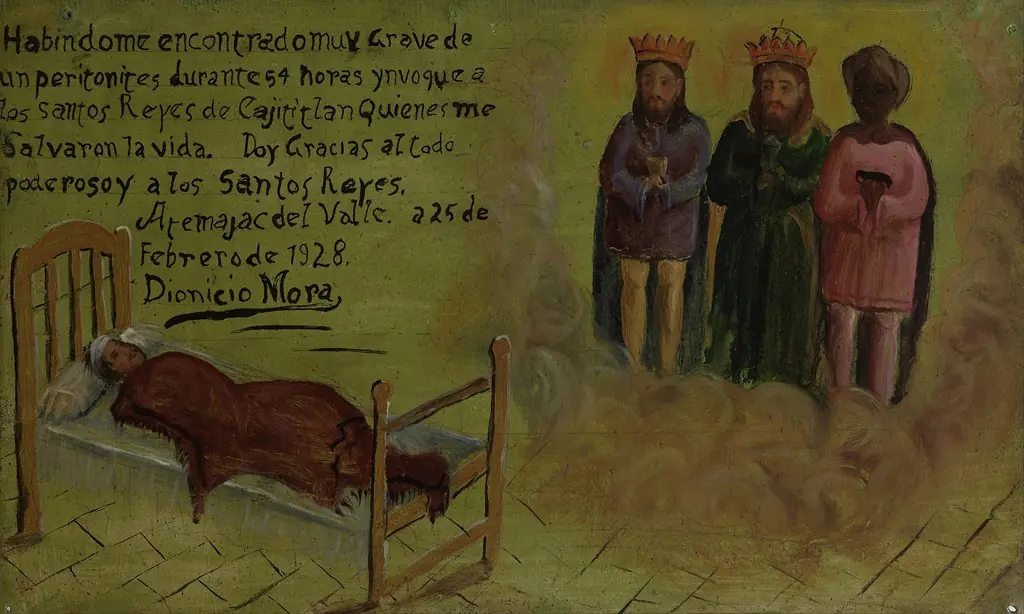 Habindome encontrado muy Grave de
un peritonites, durante 54 horas ynvoque a
los Santos Reyes de Cajititlan Quienes me
Salvaron la vida. Doy Gracias al todo
poderoso y a los Santos Reyes.
Atemajac del Valle. a 25 de
Febrero de 1928.
Dionicio Mora